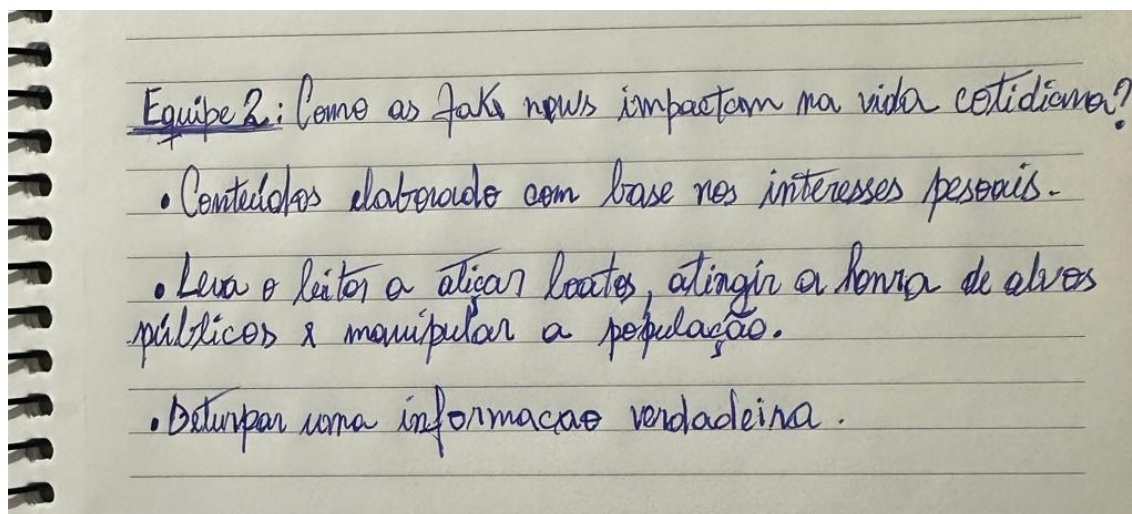 Equipe 2: Como as fake news impactam na vida cotidiana?
• Conteúdos elaborado com base nos interesses pesoais.
• Leva o leitor a atiçar boatos, atingir a honra de alvos
públicos e manipular a população.
• Deturpar uma informacao verdadeira.